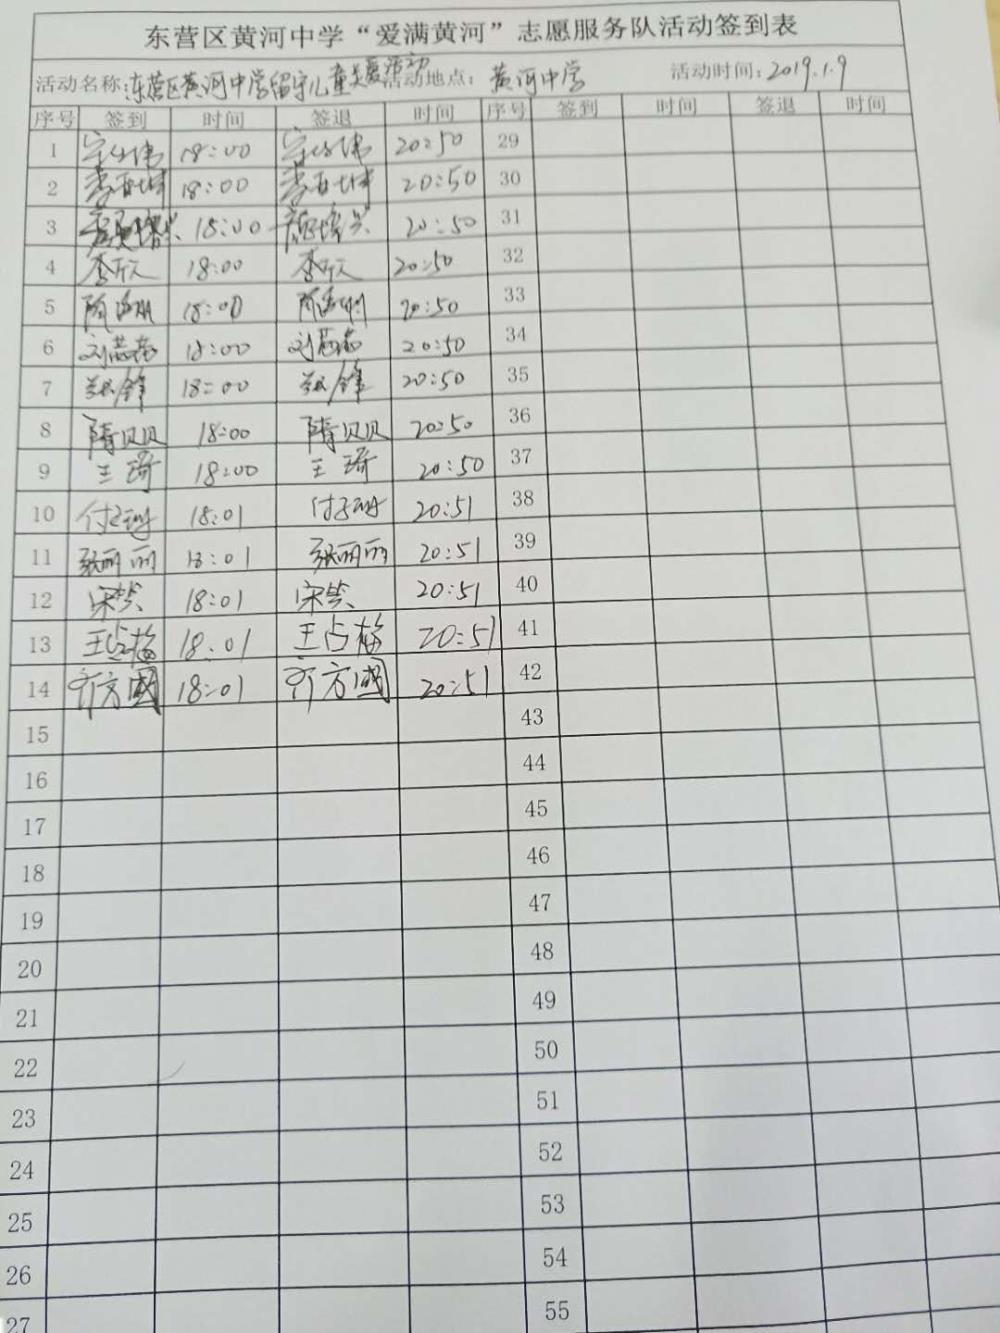 东营区黄河中学“爱满黄河”志愿服务队活动签到表
活动名称:东营区黄河中学留守儿童关爱活动 活动地点: 黄河中学 活动时间: 2019.1.9
序号 签到 时间 签退 时间 序号 签到 时间 签退 时间
1 18:00 20:50 29
2 18:00 20:50 30
3 18:00 20:50 31
4 李欣 18:00 李欣 20:50 32
5 18:00 20:50 33
6 18:00 20:50 34
7 18:00 20:50 35
8 隋贝贝 18:00 隋贝贝 20:50 36
9 王琦 18:00 王琦 20:50 37
10 18:01 20:51 38
11 张丽丽 18:01 张丽丽 20:51 39
12 18:01 20:51 40
13 王占梅 18:01 王占梅 20:51 41
14 齐方國 18:01 齐方國 20:51 42
15 43
16 44
17 45
18 46
19 47
20 48
21 49
22 50
23 51
24 52
25 53
26 54
27 55